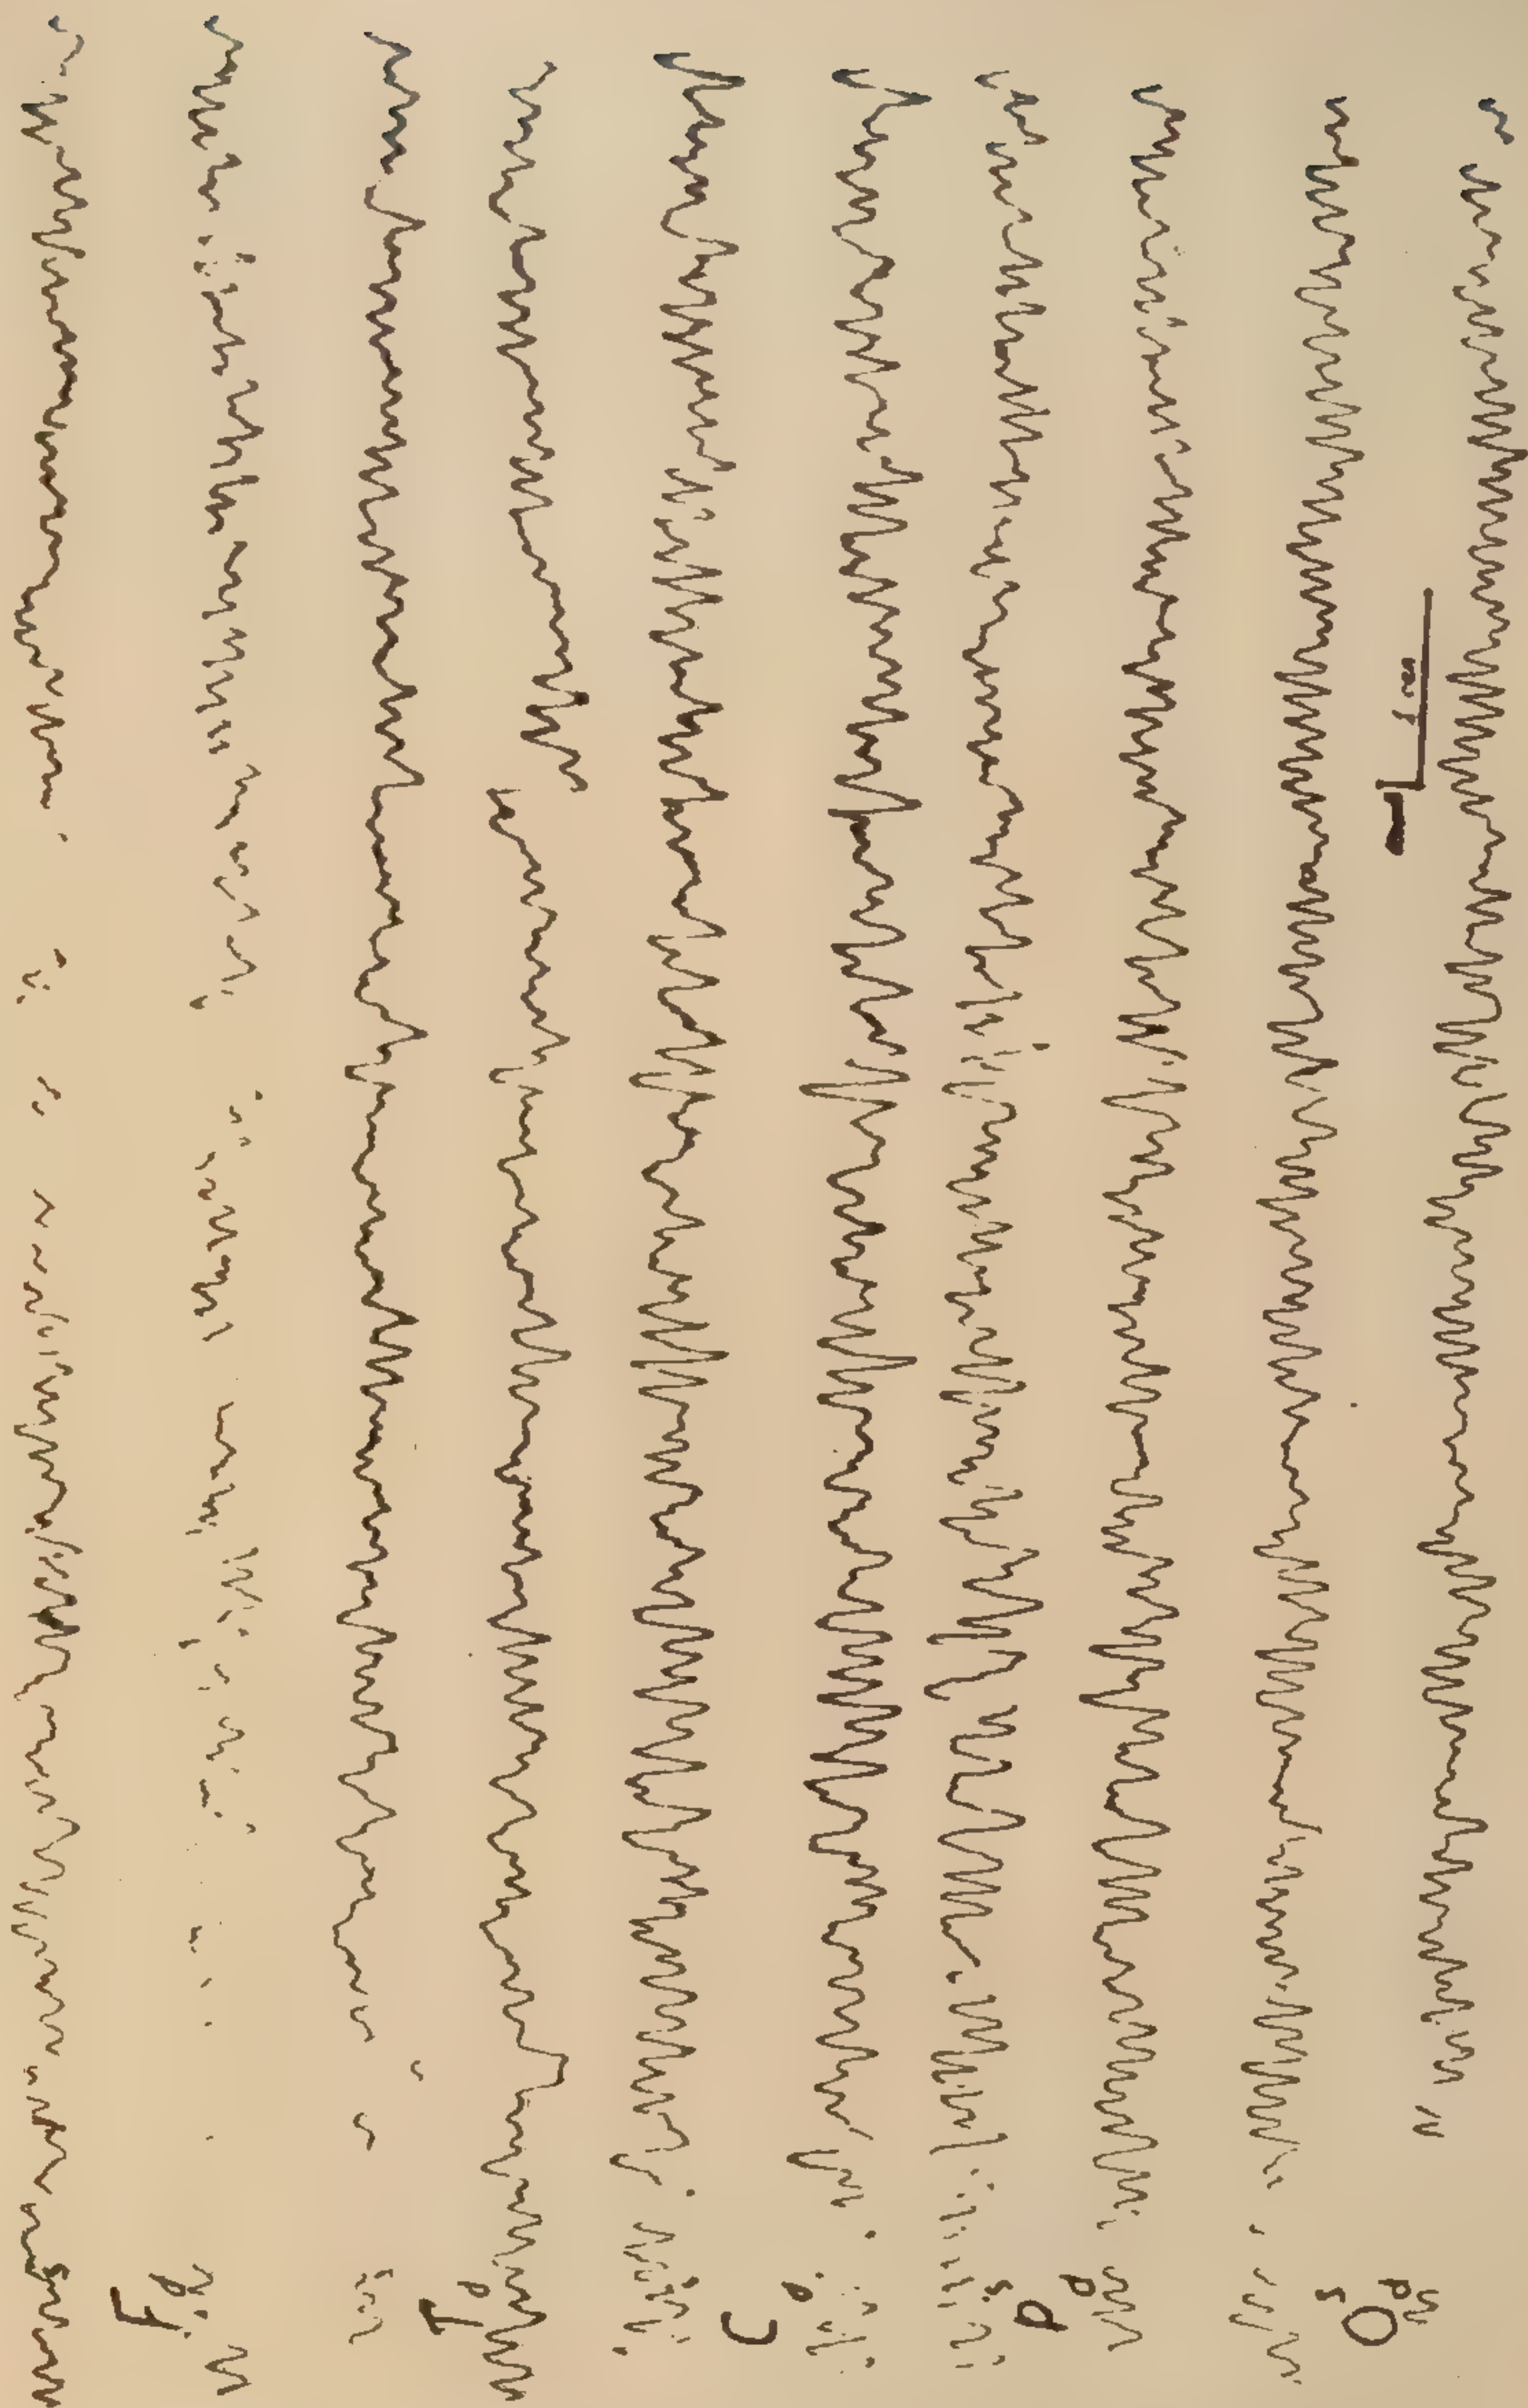 F d
T d
C d
s
P
d
s
O
d
1 sec